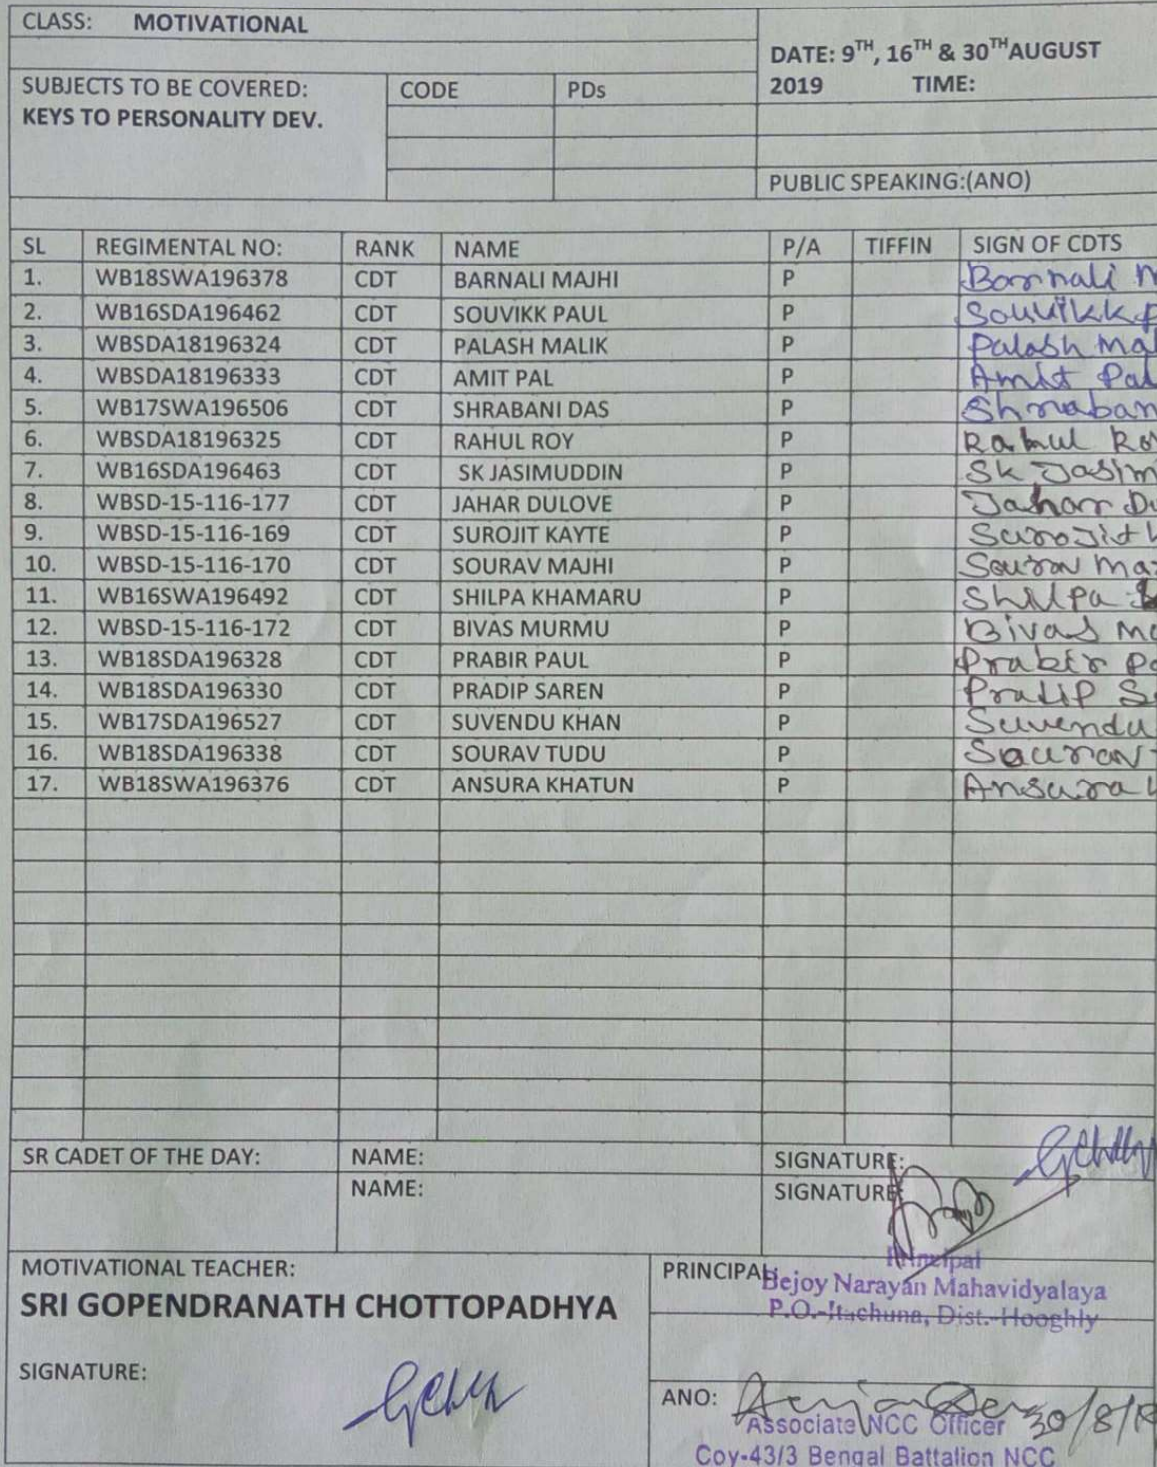 CLASS: MOTIVATIONAL
DATE: 9TH, 16TH & 30TH AUGUST
2019 TIME:
SUBJECTS TO BE COVERED: CODE PDs
KEYS TO PERSONALITY DEV.
PUBLIC SPEAKING:(ANO)
SL REGIMENTAL NO: RANK NAME P/A TIFFIN SIGN OF CDTS
1. WB18SWA196378 CDT BARNALI MAJHI P Barnali M
2. WB16SDA196462 CDT SOUVIKK PAUL P Souvikk P
3. WBSDA18196324 CDT PALASH MALIK P Palash Mal
4. WBSDA18196333 CDT AMIT PAL P Amit Pal
5. WB17SWA196506 CDT SHRABANI DAS P Shraban
6. WBSDA18196325 CDT RAHUL ROY P Rahul Roy
7. WB16SDA196463 CDT SK JASIMUDDIN P Sk Jasim
8. WBSD-15-116-177 CDT JAHAR DULOVE P Jahar Du
9. WBSD-15-116-169 CDT SUROJIT KAYTE P Surojit K
10. WBSD-15-116-170 CDT SOURAV MAJHI P Sourav Ma
11. WB16SWA196492 CDT SHILPA KHAMARU P Shilpa
12. WBSD-15-116-172 CDT BIVAS MURMU P Bivas M
13. WB18SDA196328 CDT PRABIR PAUL P Prabir Pa
14. WB18SDA196330 CDT PRADIP SAREN P Pradip S
15. WB17SDA196527 CDT SUVENDU KHAN P Suvendu
16. WB18SDA196338 CDT SOURAV TUDU P Sourav
17. WB18SWA196376 CDT ANSURA KHATUN P Ansura K
SR CADET OF THE DAY: NAME: SIGNATURE:
NAME: SIGNATURE
MOTIVATIONAL TEACHER: PRINCIPAL
SRI GOPENDRANATH CHOTTOPADHYA
Principal
Bejoy Narayan Mahavidyalaya
P.O.-Itachuna, Dist.-Hooghly
SIGNATURE:
ANO: 30/8/19
Associate NCC Officer
Coy-43/3 Bengal Battalion NCC